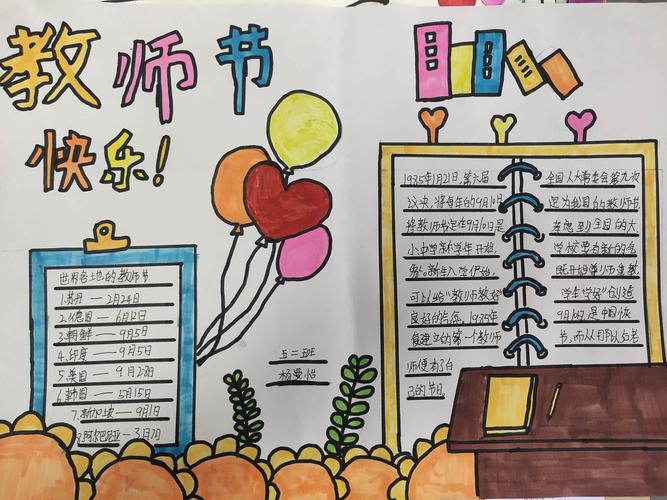 教师节
快乐!
世界各地的教师节
1.苏丹—2月24日
2.德国—6月12日
3.朝鲜—9月5日
4.印度—9月5日
5.美国—9月28日
6.韩国—5月15日
7.新加坡—9月1日
8.阿尔巴尼亚—3月7日
五二班
杨
1985年1月21日,第六届
全国人大常委会第九次
议决,将每年的9月10日
定为我国的教师节
将教师
定在9月10日是
考虑到全国的大
小中学
新学年开始,
学校
新的
始。新生入学
开始
尊师重教
可以给"教师教好"
学生"学好"创造
良好的
1985年
9月10日是中国恢
复建立的第一个教师
节,
师便有了自
己的节日。